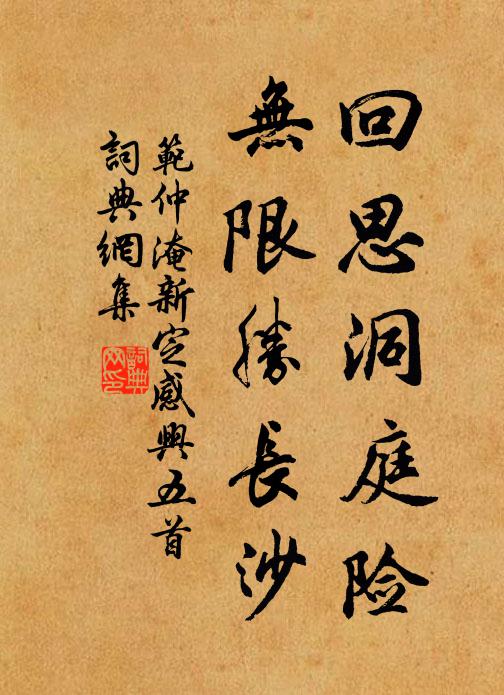 回思洞庭险
無限勝長沙
範仲淹新定感興五首
詞典網集
詞典网印